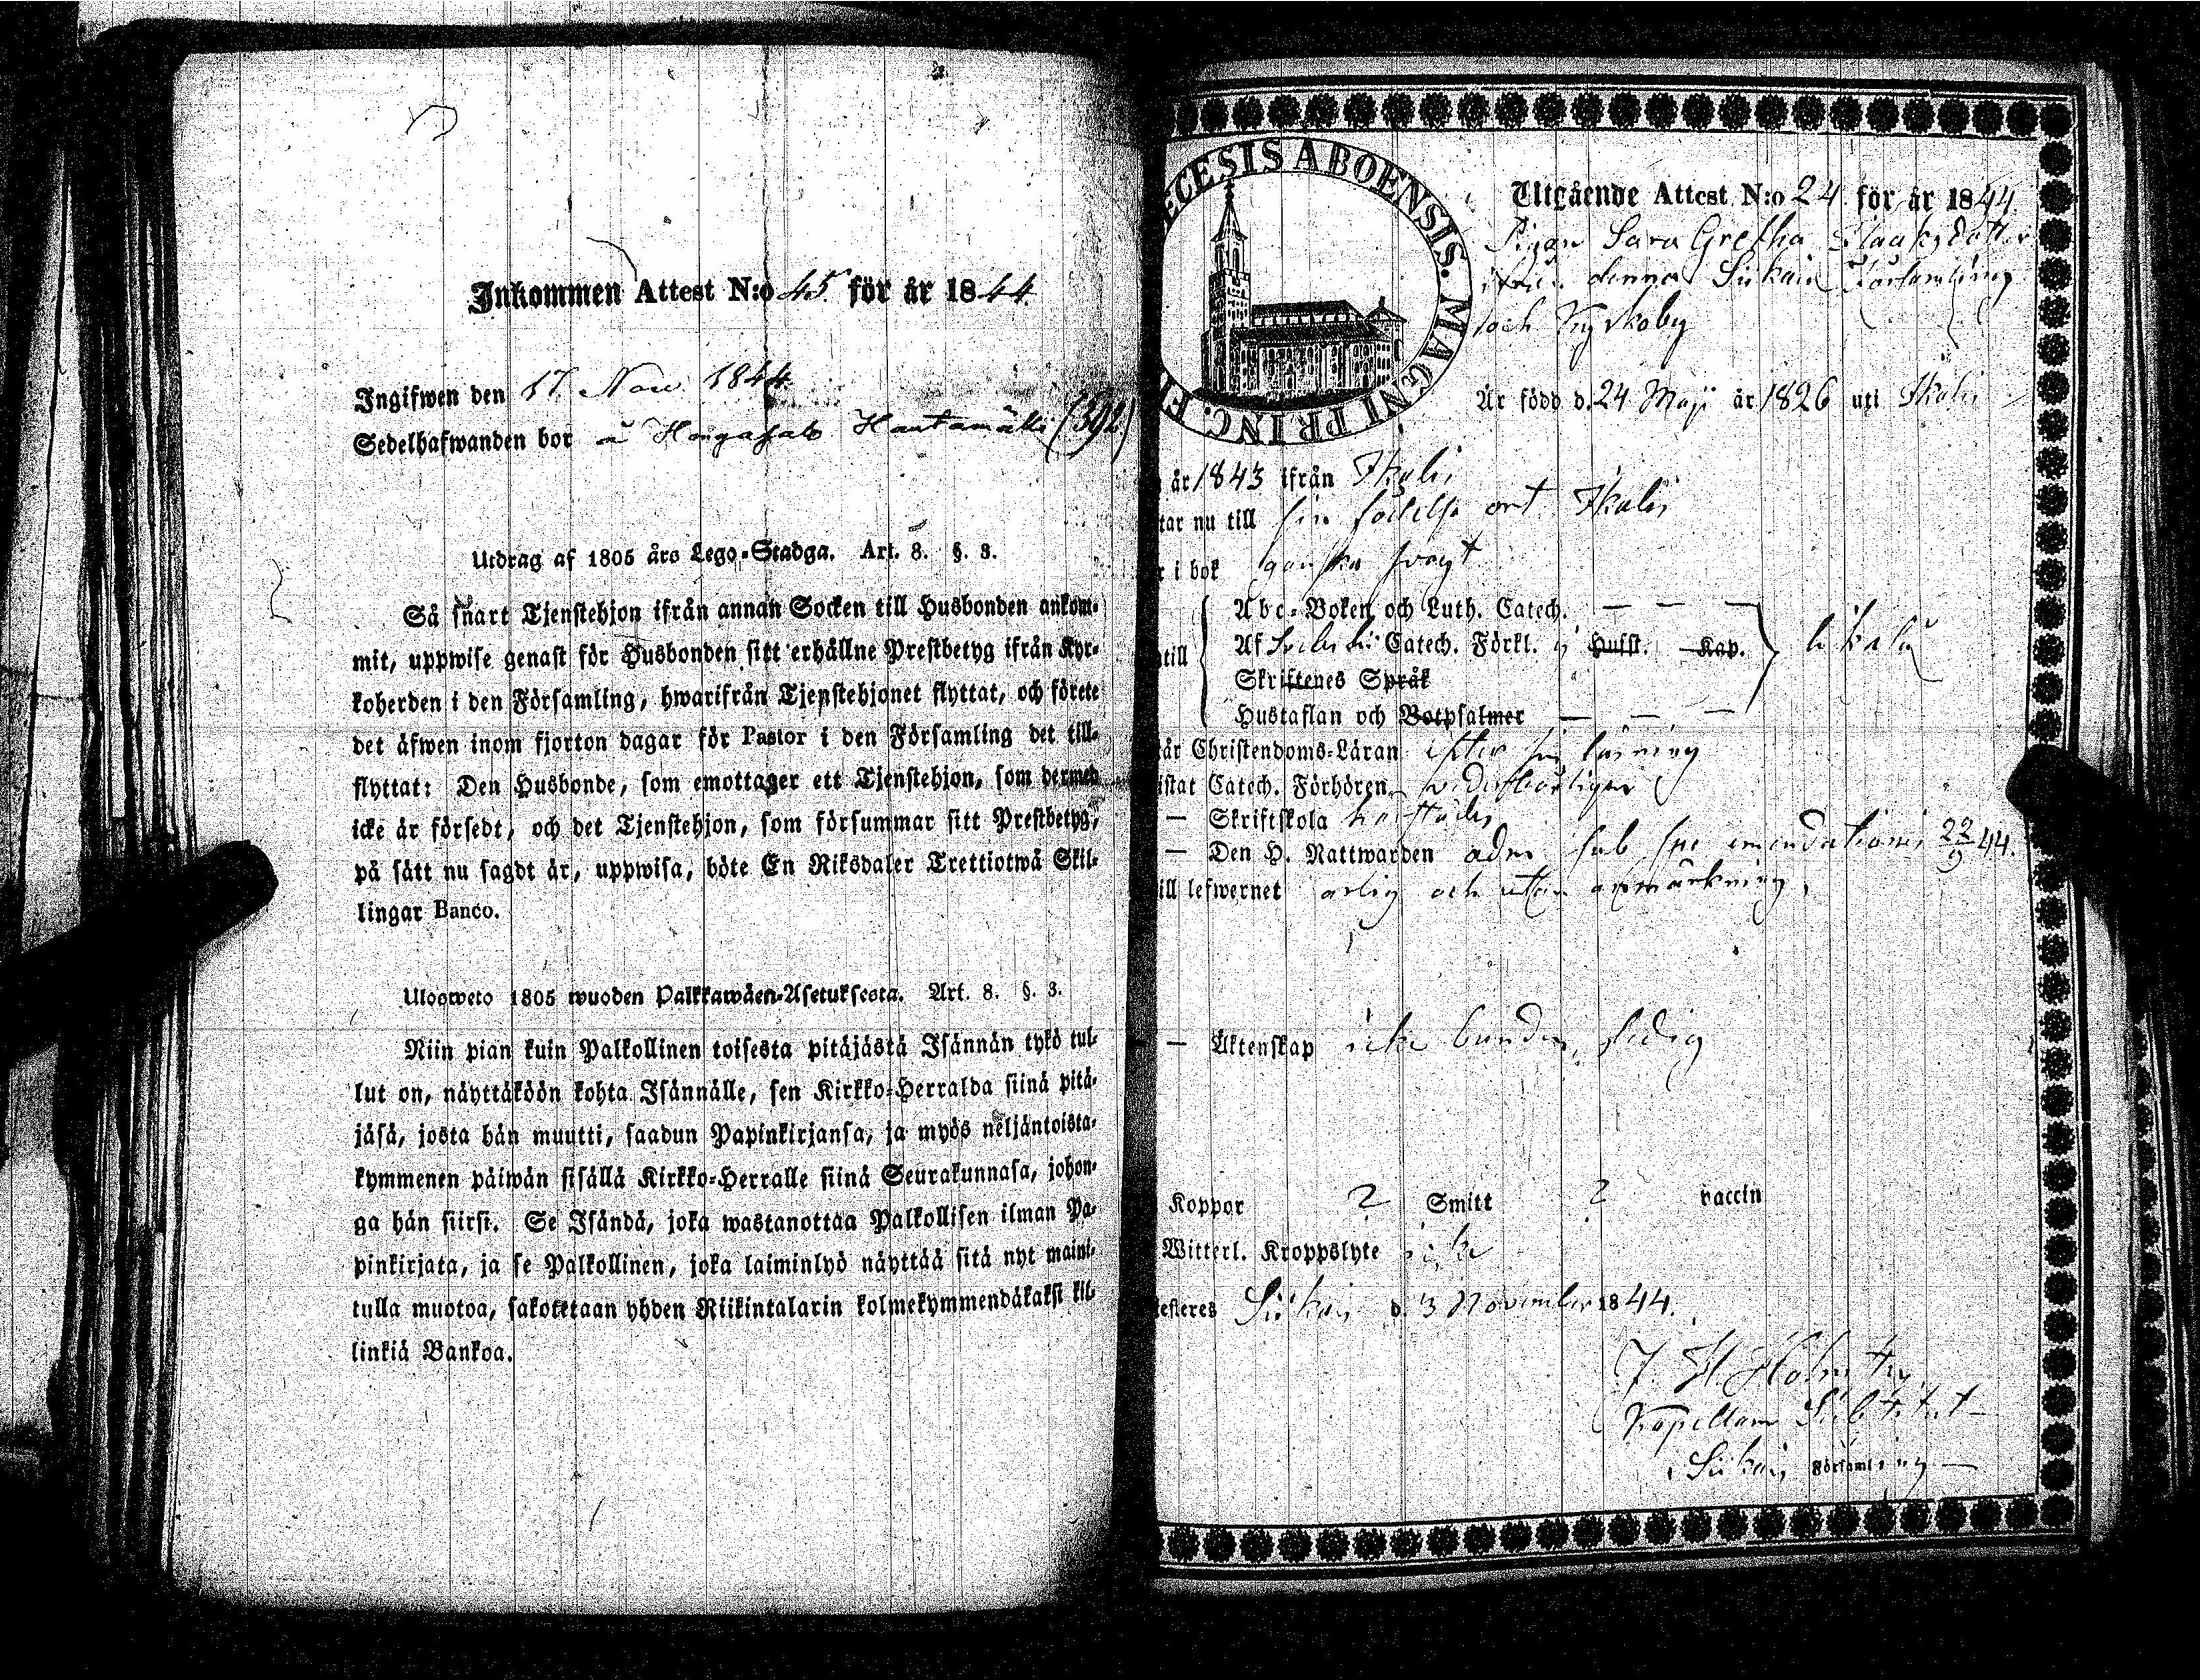 Inkommen Attest N:o 45 för år 1844.
Ingifwen den 17. Nov. 1844.
Sedelhafwanden bor å Hautamäki (392)
Utdrag af 1805 års Lego-Stadga. Art. 8. §. 3.
Så snart Tjenstehjon ifrån annan Socken till Husbonden ankom-
mit, uppwise genast för Husbonden sitt erhållne Prestbetyg ifrån Kyr-
koherden i den Församling, hwarifrån Tjenstehjonet flyttat, och förete
det äfwen inom fjorton dagar för Pastor i den Församling det till-
flyttat: Den Husbonde, som emottager ett Tjenstehjon, som dermed
icke är försedt, och det Tjenstehjon, som försummar sitt Prestbetyg,
på sätt nu sagdt är, uppwisa, böte En Riksdaler Trettiotwå Skil-
lingar Banco.
Ulosweto 1805 wuoden Palkkawäen-Asetuksesta. Art. 8. §. 3.
Niin pian kuin Palkollinen toisesta pitäjästä Isännän tykö tul-
lut on, näyttäköön kohta Isännälle, sen Kirkko-Herralda siinä pitä-
jäsä, josta hän muutti, saadun Papinkirjansa, ja myös neljäntoista-
kymmenen päiwän sisällä Kirkko-Herralle siinä Seurakunnasa, johon-
ga hän siirsi. Se Isändä, joka wastanottaa Palkollisen ilman Pa-
pinkirjata, ja se Palkollinen, joka laiminlyö näyttää sitä nyt maini-
tulla muotoa, sakotetaan yhden Riikintalarin kolmekymmendäkaksi kil-
linkiä Bankoa.
ECESIS ABOENSIS. MAGNI PRINC. FI
Utgående Attest N:o 24 för år 1844
Pigan Sara Gretha Isaaksdotter
ifrån denna Siikais Församling
och Kyrkoby
Är född d. 24 Maji år 1826 uti Ikalis
år 1843 ifrån Ikalis
tar nu till sin födelse ort Ikalis
r i bok ganska svagt
Abc-Boken och Luth. Catech. — — —
till Af Catech. Förkl. Hufst. Kap.
Skriftenes Språk
Hustaflan och Botpsalmer — — —
år Christendoms-Läran efter sin läsning
istat Catech. Förhören
— Skriftskola
— Den H. Nattwarden adm sub spe emendationis 22/9 44.
ill lefwernet ärlig och utan anmärkning,
— Äktenskap icke bunden, ledig
Koppor ? Smitt ? vaccin
Witterl. Kroppslyte icke
testeres Siikais d. 3 November 1844.
Kapellans Substitut
Siikais Församling —